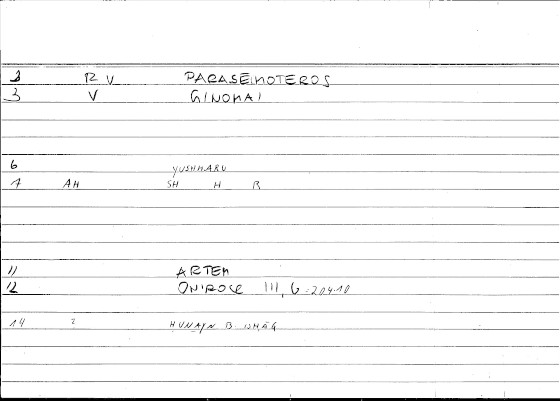 3 R V PARASĒMOTEROS
3 V GINOMAI
6 YUSHMARU
7 AH SH H R
11 ARTEM
12 ONIROCR III, 6 = 204.10
14 ? HUNAYN B ISHĀQ